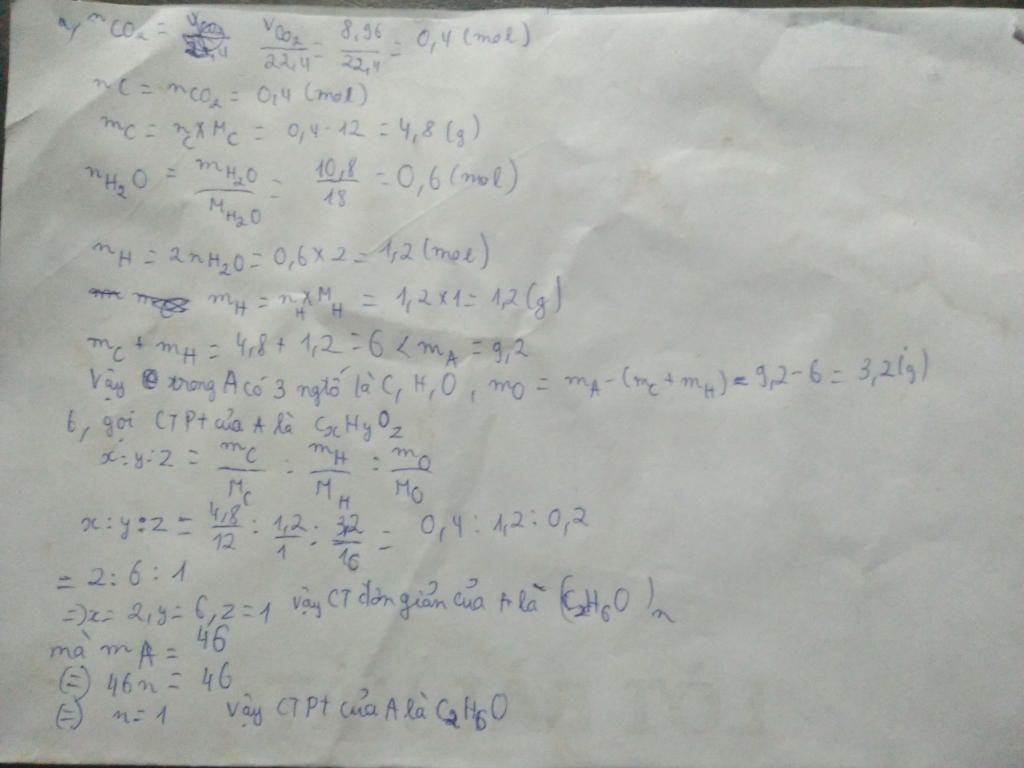 a, nCO₂ = VCO₂/22,4 = 8,96/22,4 = 0,4 (mol)
nC = nCO₂ = 0,4 (mol)
mC = nC × MC = 0,4 . 12 = 4,8 (g)
nH₂O = mH₂O/MH₂O = 10,8/18 = 0,6 (mol)
nH = 2nH₂O = 0,6 × 2 = 1,2 (mol)
mH = nH × MH = 1,2 × 1 = 1,2 (g)
mC + mH = 4,8 + 1,2 = 6 < mA = 9,2
Vậy trong A có 3 ngtố là C, H, O, mO = mA - (mC + mH) = 9,2 - 6 = 3,2 (g)
b, gọi CTPt của A là CxHyOz
x : y : z = mC/MC : mH/MH : mO/MO
x : y : z = 4,8/12 : 1,2/1 : 3,2/16 = 0,4 : 1,2 : 0,2
= 2 : 6 : 1
=> x = 2, y = 6, z = 1 Vậy CT đơn giản của A là (C₂H₆O)n
mà mA = 46
(=) 46n = 46
(=) n = 1 Vậy CTPt của A là C₂H₆O